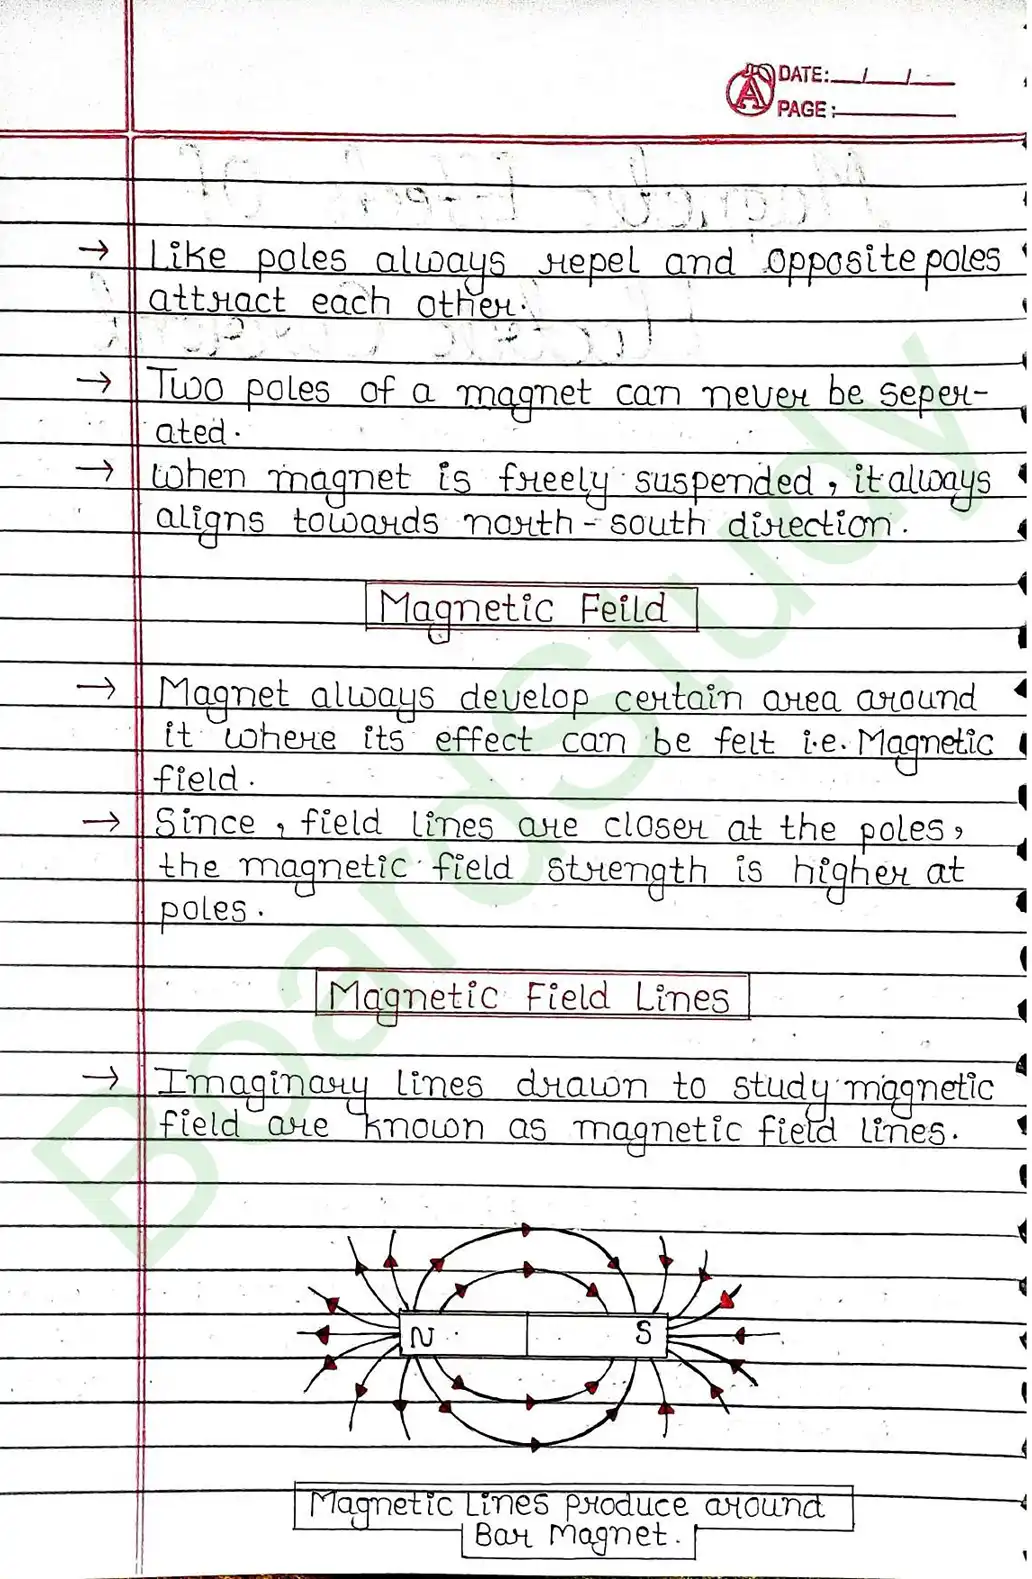 DATE: / /
PAGE:
→ Like poles always repel and opposite poles
attract each other.
→ Two poles of a magnet can never be seper-
ated.
→ When magnet is freely suspended, it always
aligns towards north-south direction.
Magnetic Feild
→ Magnet always develop certain area around
it where its effect can be felt i.e. Magnetic
field.
→ Since, field lines are closer at the poles,
the magnetic field strength is higher at
poles.
Magnetic Field Lines
→ Imaginary lines drawn to study magnetic
field are known as magnetic field lines.
N S
Magnetic Lines produce around
Bar Magnet.
BoardStudy